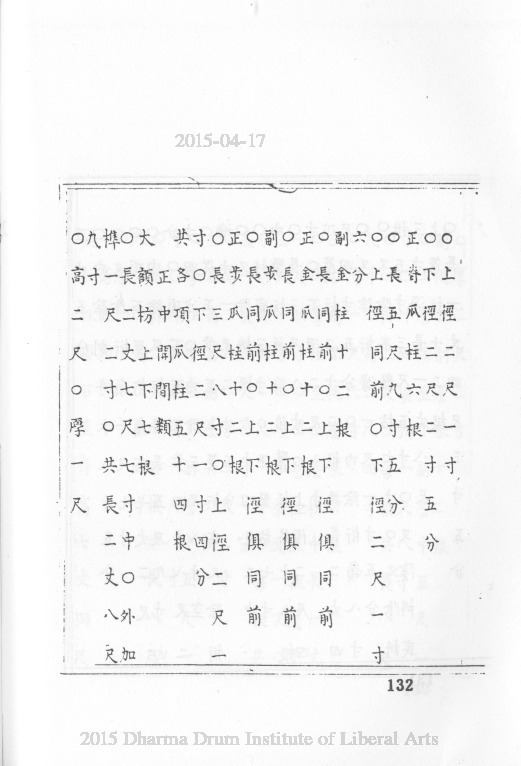 ○上徑二尺一寸
○下徑二尺二寸五分
正脊瓜柱六根
○長五尺九寸五分
○上徑同前○下徑二尺一寸
六分
副金柱十二根
○長同前○上下徑俱同前
正金瓜柱十二根
○長同前○上下徑俱同前
副步瓜柱十二根
○長同前○上下徑俱同前
正步瓜柱十二根
○長三尺八寸○上徑二尺一
寸○下徑二尺一寸四分
共各項瓜柱五十四根
正中開間
大額枋上下七根
○長二丈七尺七寸中○外加
榫一尺二寸○共長二丈八尺
九寸
○高二尺○厚一尺
132
2015-04-17
2015 Dharma Drum Institute of Liberal Arts